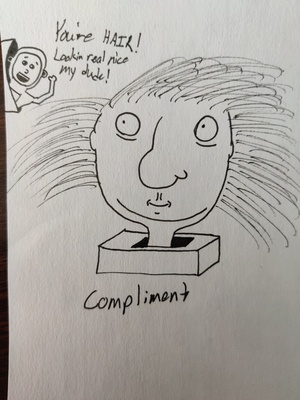 You're HAIR!
Lookin real nice
my dude!
Compliment